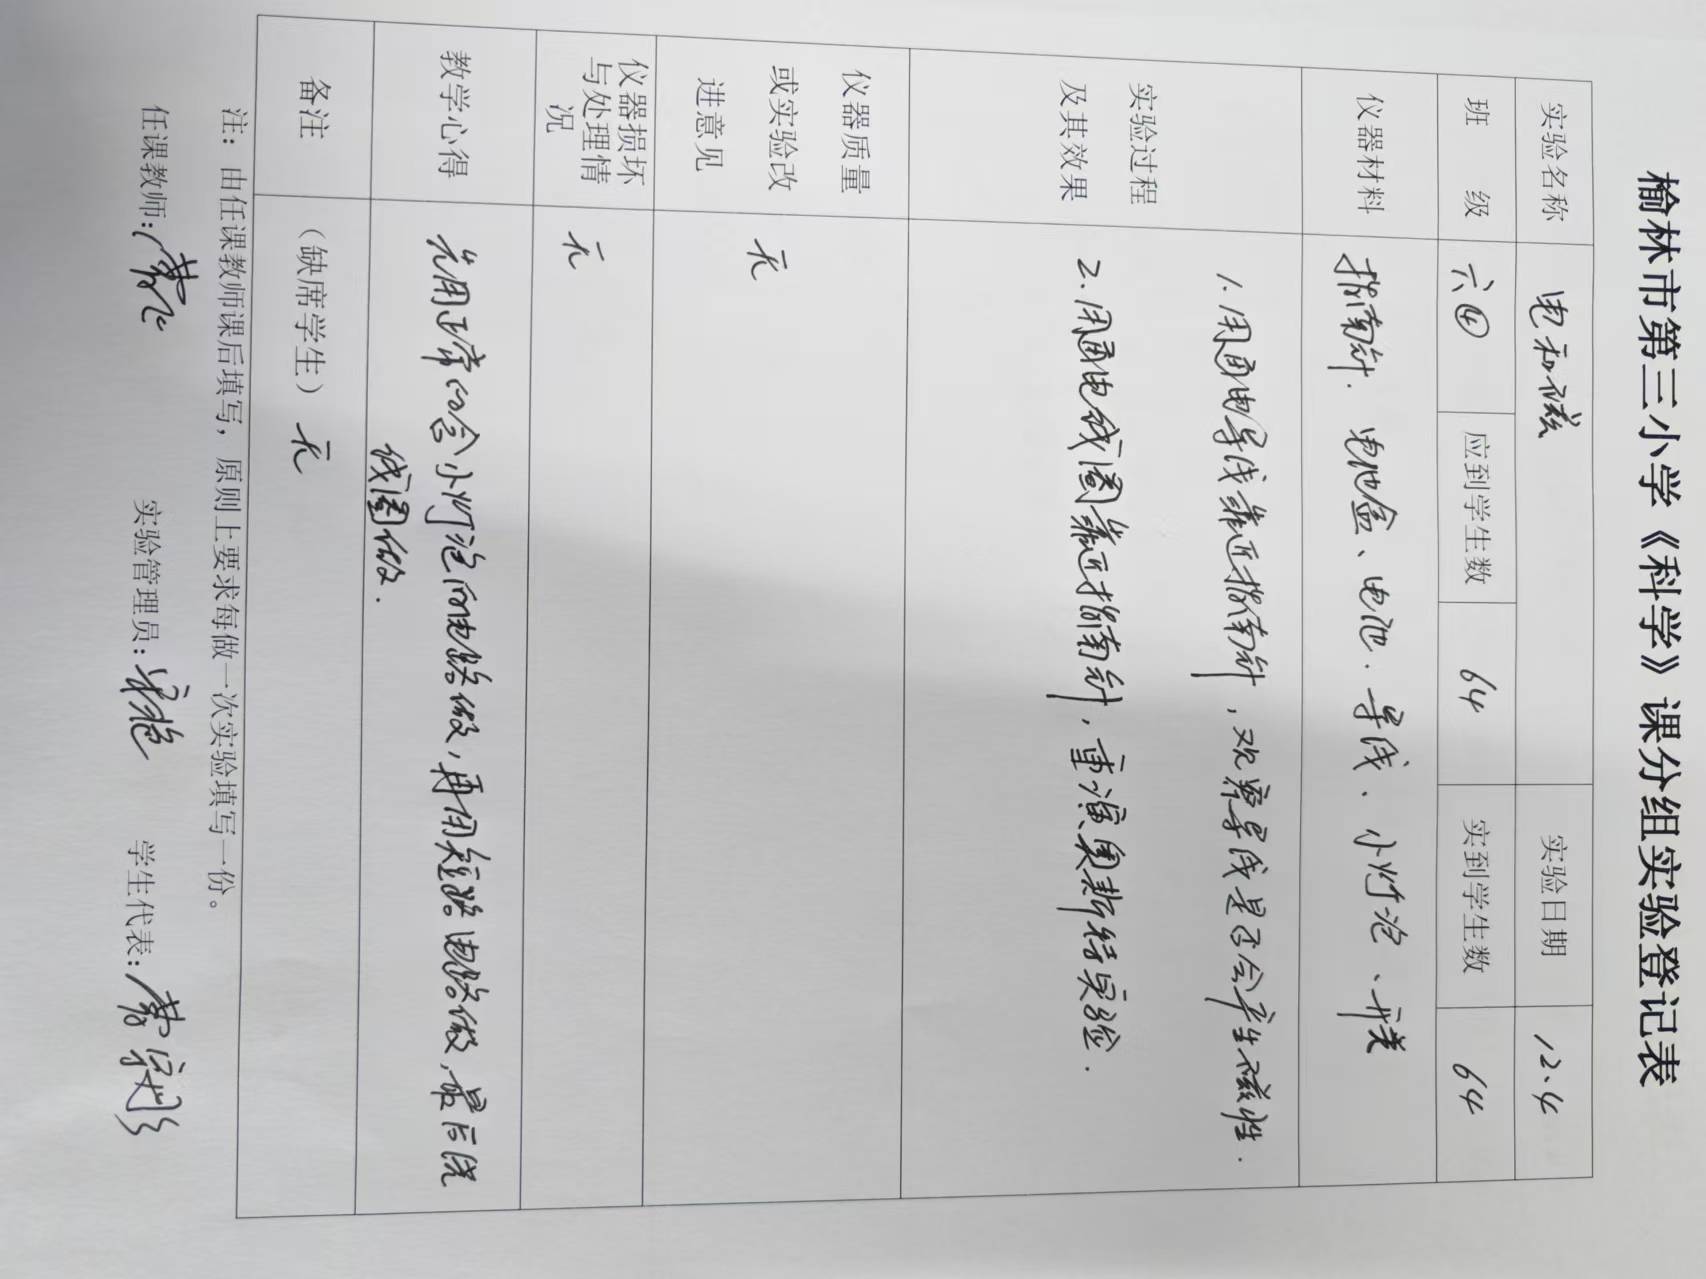 榆林市第三小学《科学》课分组实验登记表
实验名称 电和磁 实验日期 12.4
班 级 六④ 应到学生数 64 实到学生数 64
仪器材料 指南针、电池盒、电池、导线、小灯泡、开关
实验过程
及其效果
1.用通电导线靠近指南针，观察导线是否会产生磁性.
2.用通电线圈靠近指南针，重演奥斯特实验.
仪器质量
或实验改
进意见
无
仪器损坏
与处理情
况
无
教学心得
先用正常的含小灯泡的电路做，再用短路电路做，最后绕
线圈做.
备注 （缺席学生）无
注：由任课教师课后填写，原则上要求每做一次实验填写一份。
任课教师： 实验管理员： 学生代表：